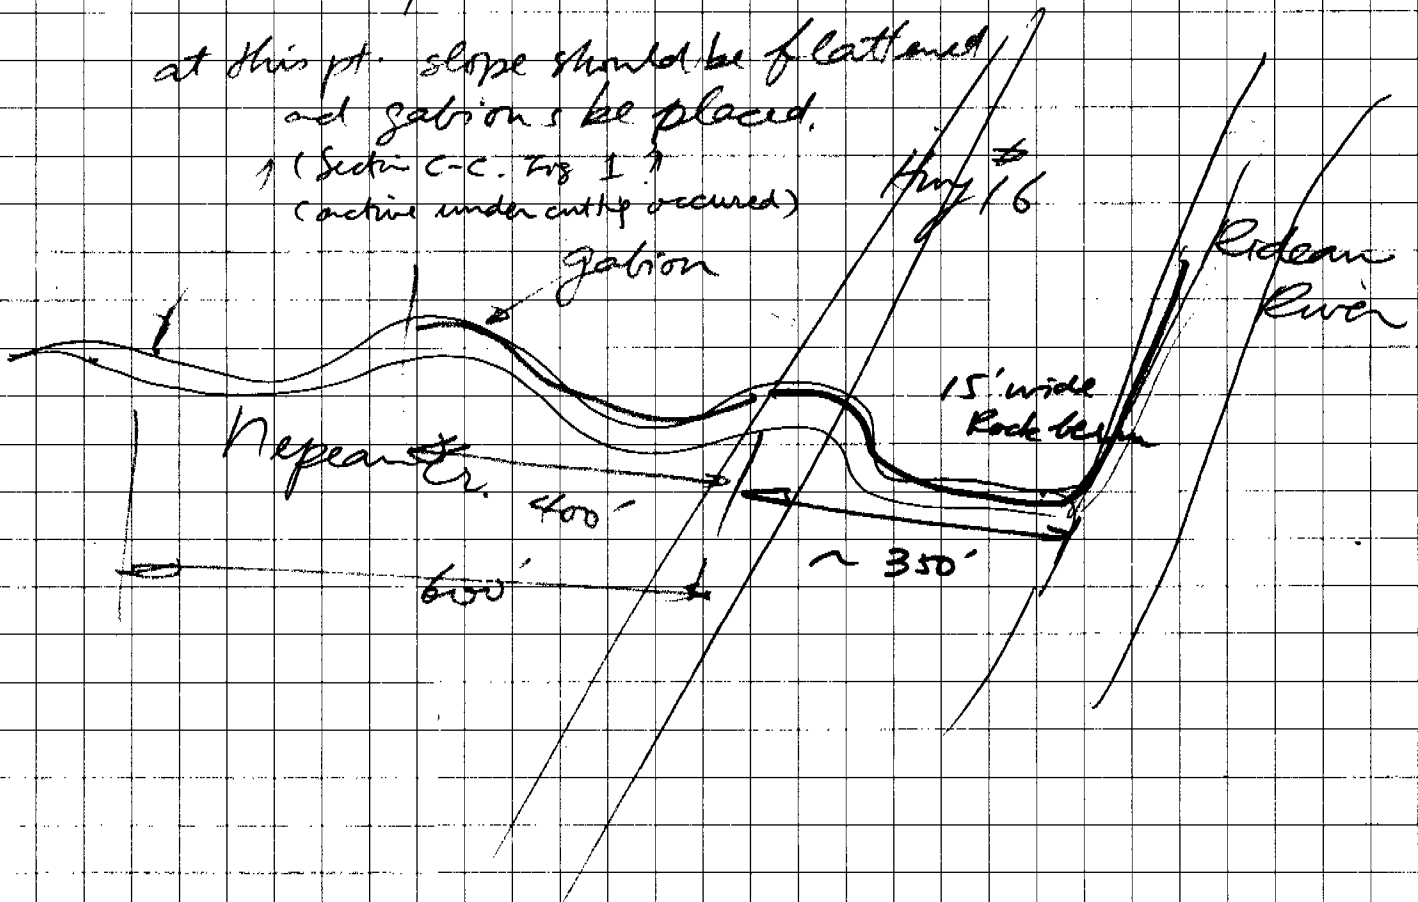 at this pt. slope should be flattened
and gabions be placed.
(Section C-C. Fig 1)
(active undercutting occured)
gabion
Hwy #16
Rideau
River
15' wide
Rock berm
Nepean Cr.
400'
~ 350'
600'